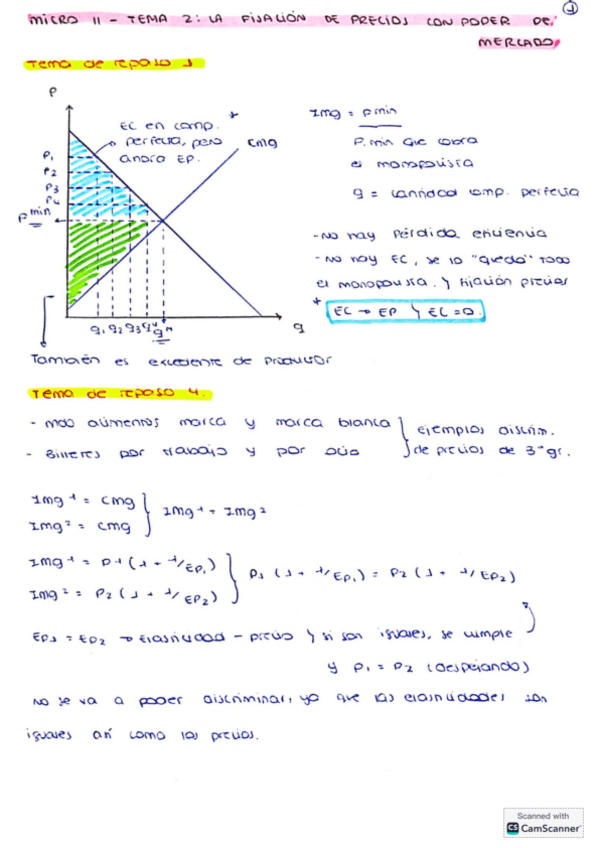 1
MICRO II - TEMA 2: LA FIJACIÓN DE PRECIOS CON PODER DE
MERCADO
Tema de repaso 1
P
EC en comp. *
perfecta, pero
ahora EP.
Cmg
P1
P2
P3
P4
Pmin
q1 q2 q3 q4 q*
q
Img = Pmin
P.min que cobra
el monopolista
q = cantidad comp. perfecta
- No hay pérdida eficiencia
- No hay EC, se lo "queda" todo
el monopolista. y fijación precios
* EC → EP y EC = 0.
También es excedente de productor
Tema de repaso 4.
- Mdo alimentos marca y marca blanca } ejemplos discrim.
- Billetes por trabajo y por ocio } de precios de 3er gr.
Img1 = Cmg } Img1 = Img2
Img2 = Cmg
Img1 = P1 (1 + 1/EP1) } P1 (1 + 1/EP1) = P2 (1 + 1/EP2)
Img2 = P2 (1 + 1/EP2)
EP1 = EP2 → Elasticidad - precio y si son iguales, se cumple
y P1 = P2 (despejando)
No se va a poder discriminar, ya que las elasticidades son
iguales así como los precios.
Scanned with
CS CamScanner